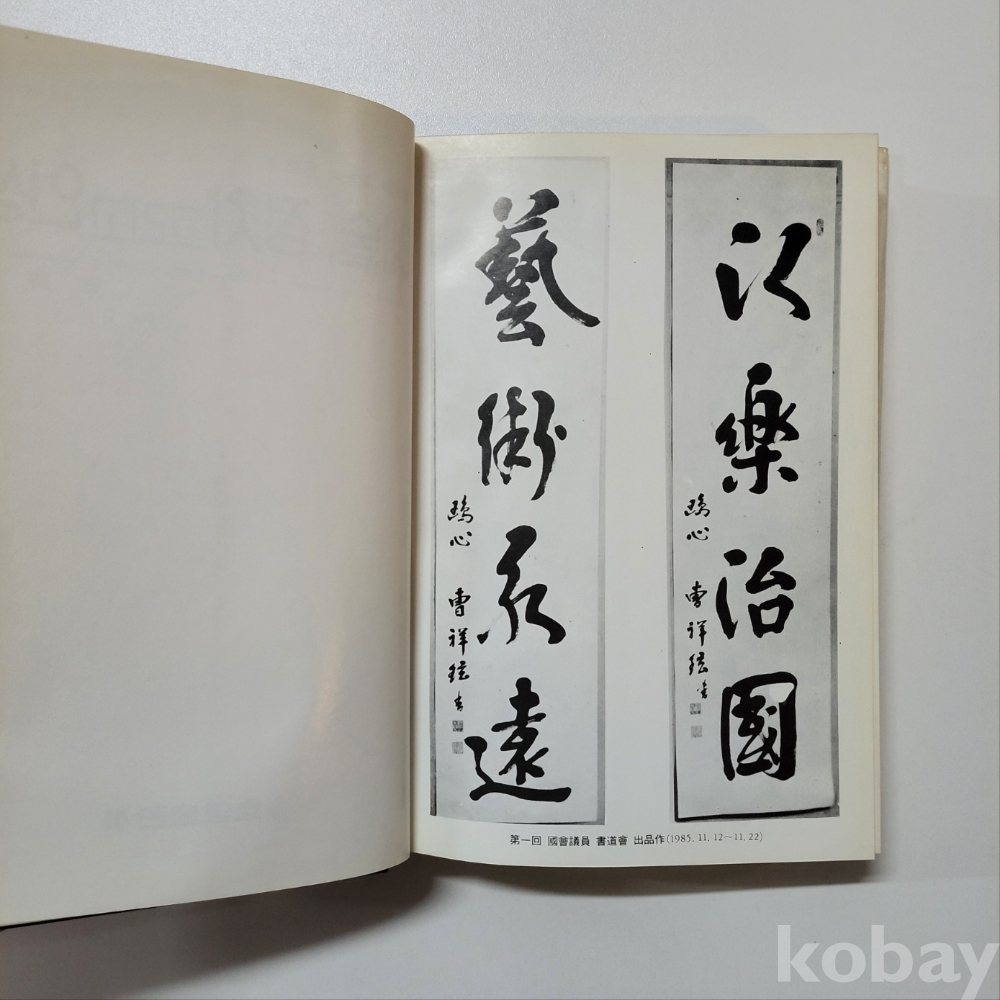 以樂治國
曺祥鉉
藝術永遠
曺祥鉉
第一回 國會議員 書道會 出品作(1985. 11. 12~11. 22)
kobay